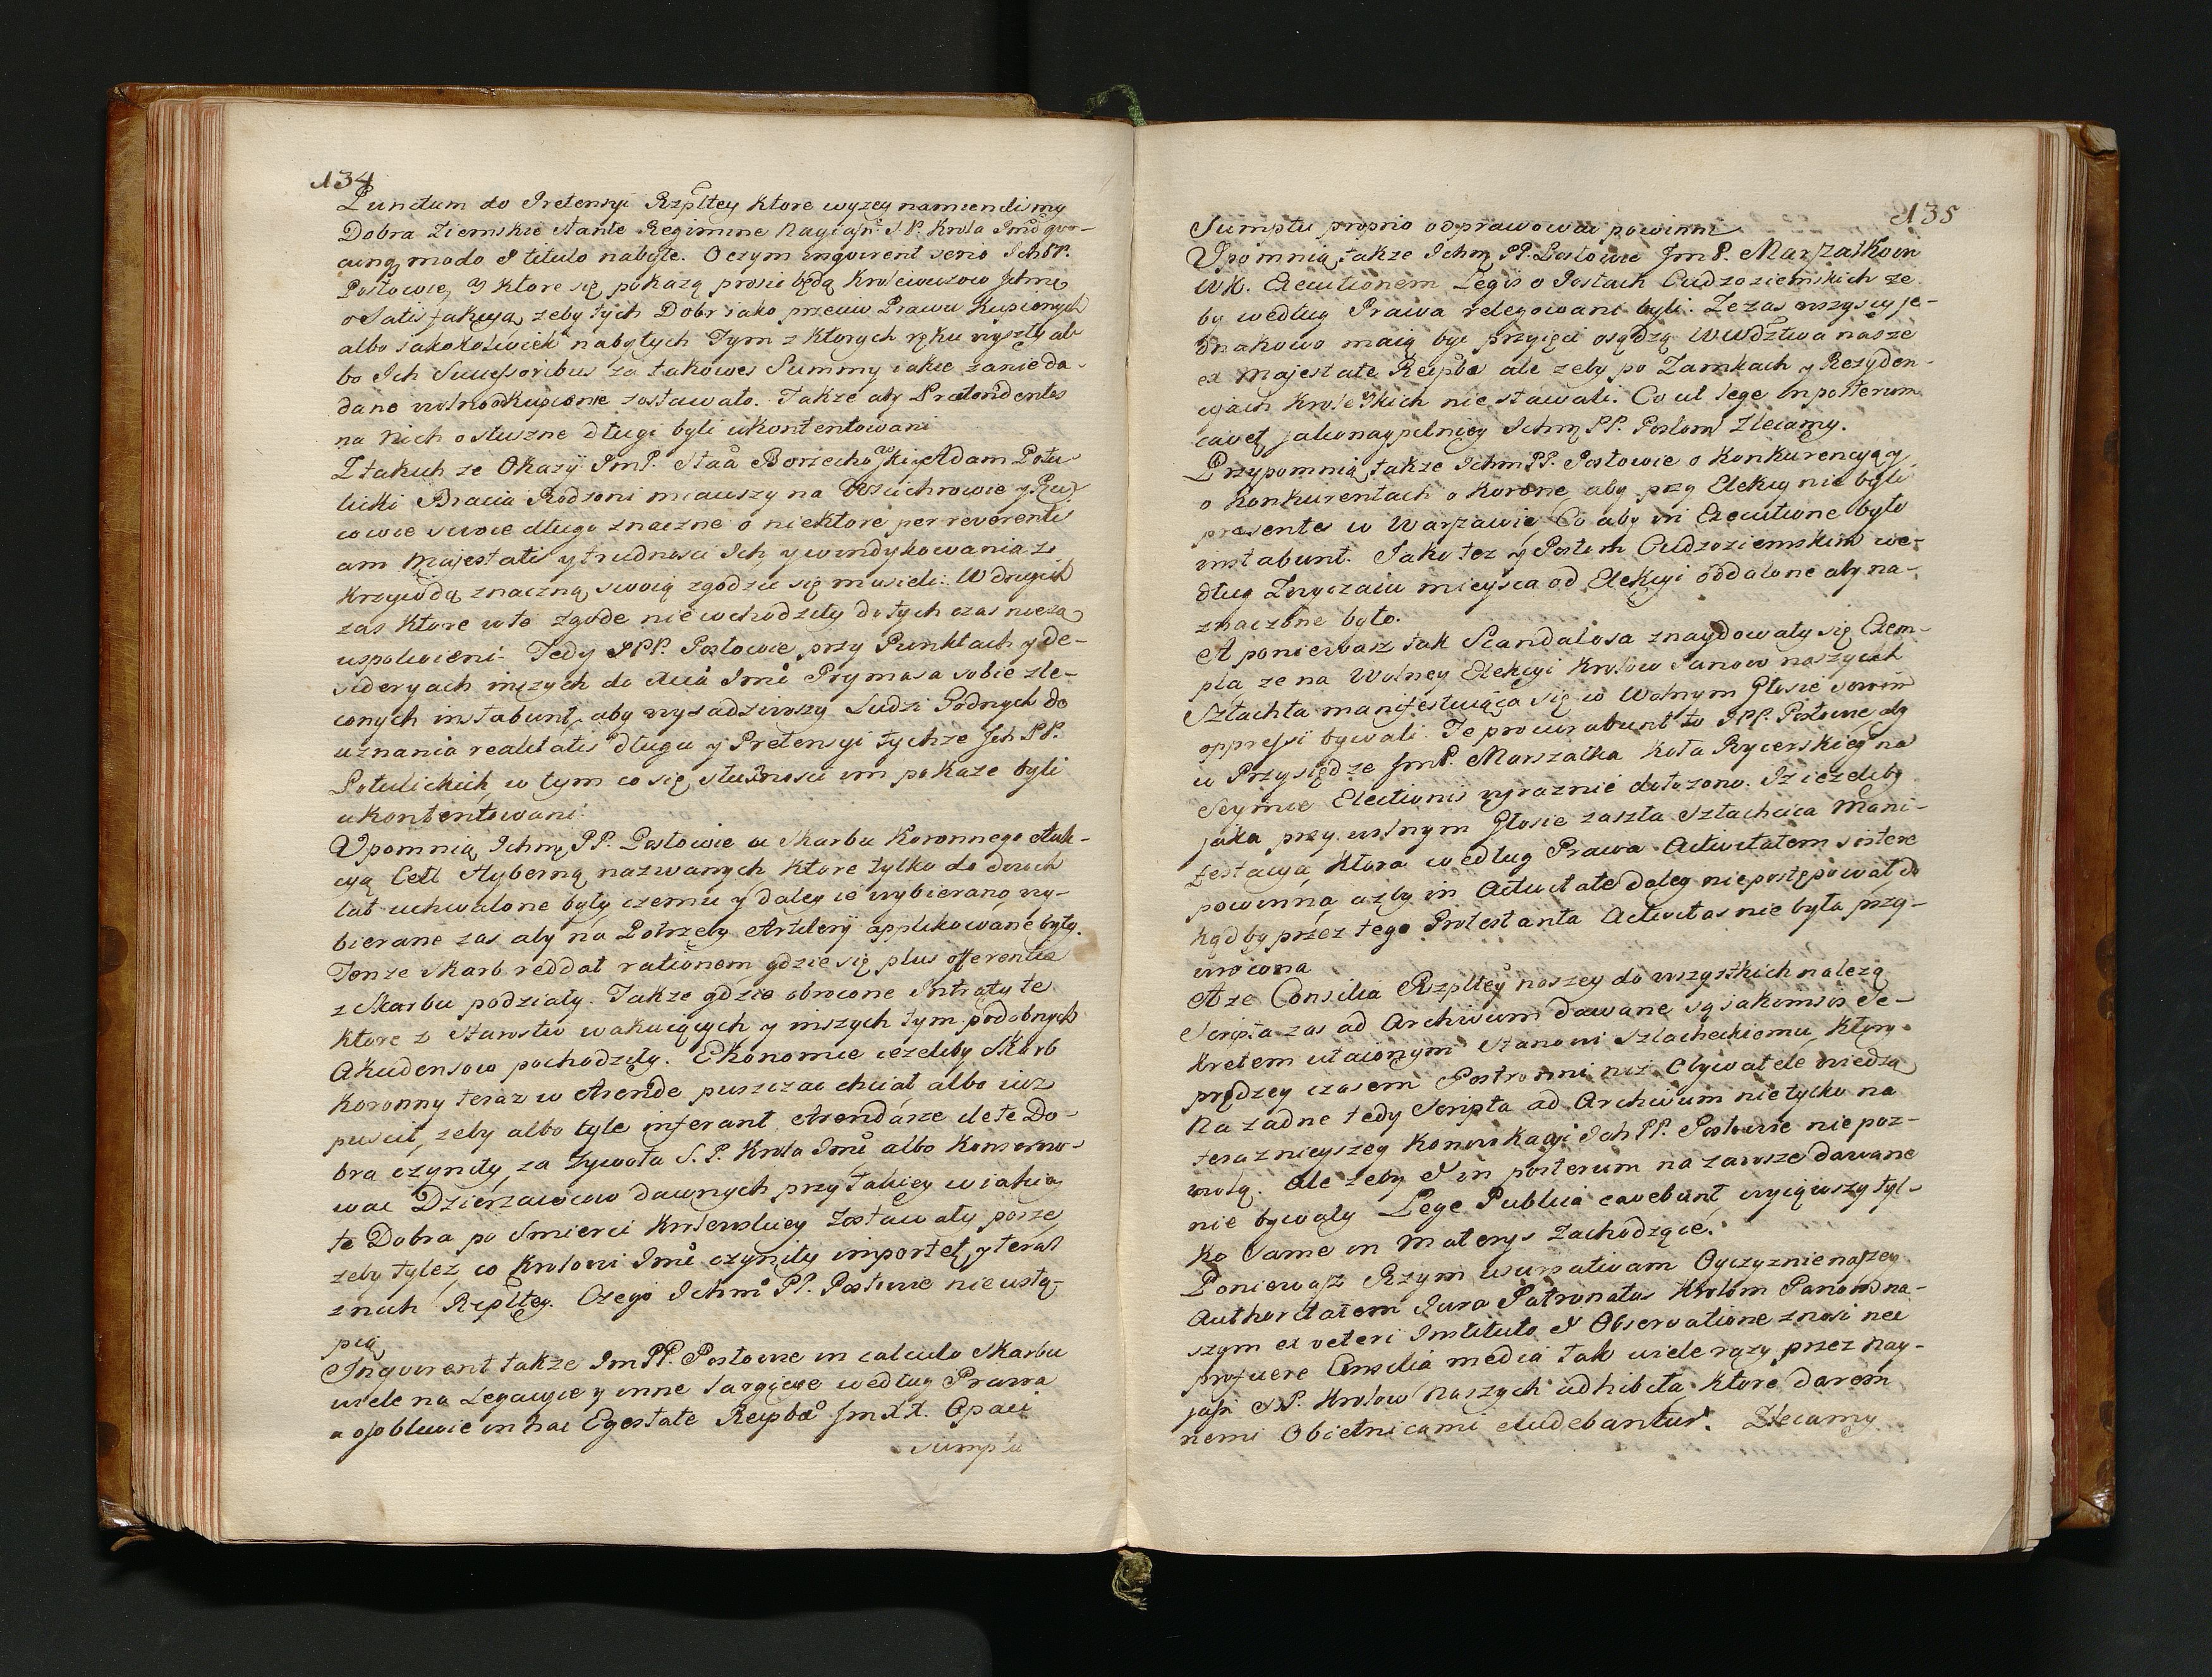 134
Punctum do Pretensyi Rzpltey ktore wyzey namienelismy
Dobra Ziemskie stante Regimine Nayiasn: S. P. Krola Jmci quo-
cunq modo & titulo nabyte. O czym inquirent serio Ich PP.
Posłowie, y ktore się pokazą prosic będą Krolewiczow Jchmci
o Satisfakcyą zeby tych Dobr iako przeciw Prawu kupionych
albo iakokolwiek nabytych Tym z ktorych ręku wyszły al-
bo Ich Successoribus za takowes Summy iakie zanie da-
dane wolno okupione zostawało. Takze aby Praetendentes
na nich o słuszne długi byli ukontentowani
Z takich ze Okazyi ImP. Staa Borzechowski y Adam Potu-
licki Bracia Rodzoni miawszy na
cowie swoie długi znaczne o niektore per reverenti-
am Majestatis y trudnosci Ich ywindykowania z
krzywdą znaczną swoią zgodzic się musieli. W drugich
zas ktore w te zgode nie wchodziły do tych czas nieza-
uspokoieni. Tedy IPP. Posłowie przy Punktach y de-
syderyach inszych do Xcia Jmci Prymasa sobie zle-
conych instabunt, aby wysadziwszy Ludzi Godnych do
uznania realitatis długu y Pretensyi tychze Ich PP.
Potulickich, w tym co się słusznosci im pokaze byli
ukontentowani.
Upomnią Ichmę PP. Posłowie u Skarbu Koronnego Auk-
cyą Ceł Hyberną nazwanych ktore tylko do dwoch
lat uchwalone były czemu y daley ie wybierano, wy-
bierane zas aby na Potrzeby Artilleryi applikowane były.
Tenze Skarb reddat rationem gdzie się plus offerentia
z Skarbu podziały. Takze gdzie obrocone Intraty te
ktore z Starostw wakuiących y inszych tym podobnych
Akcidensow pochodziły. Ekonomie iezeliby Skarb
Koronny teraz w Arende puszczac chciał albo iuz
puscił, zeby albo tyle inferant Arendarze ile te Do-
bra czyniły, za zywota S. P. Krola Jmci albo konserwo-
wac Dzierzawcow dawnych przy takiey w iakiey
te Dobra po Smierci Krolewskiey zostawały posze
zeby tylez co Krolowi Jmci czyniły importet, y teraz
z nich Rzpltey. Czego Ichmci PP. Posłowie nie ustą-
pią
Inquirent takze Im PP. Posłowie in calculo Skarbu
wiele na Legacyie y inne largicye według Prawa
a osobliwie in hac Egestate Reipbca Jm XX. Opaci
sumptu
135
Sumptu proprio odprawowac powinni
Upomnią takze Ichmę PP. Posłowie Jm P. Marszałkow
WK. Executionem Legis o Posłach Cudzoziemskich ze
by według Prawa relegowani byli. Ze zas wszyscy je-
dnakowo maią byc przyięci osądzą Wwdztwa nasze
ex Majestate Reipbca ale zeby po Zamkach y Rezyden-
cyach Krolewskich nie stawali. Co ut lege in posterum
caveat, jako naypilniey Ichmę PP. Posłom Zlecamy.
Przypomnią takze Ichm PP. Posłowie o Konkurencyą y
o Konkurentach o Korone, aby przy Elekcyi nie byli
praesentes w Warszawie. Co aby in Executione było
instabunt. Jako tez y Posłom Cudzoziemskim we-
dług Zwyczaiu mieysca od Elekcyi oddalone aby na-
znaczone było.
A poniewasz tak Scandalosa znaydowały się Exem-
pla ze na Wolney Elekcyi Krolow Panow naszych
Szlachta manifestuiąca się w Wolnym Głosie swoim
oppressi bywali. Te procurabunt to IPP. Posłowie aby
w Przysiędze JmP. Marszałka Koła Rycerskieg na
Seymie Electionis wyraznie dołozono. Iz iezeliby
jaka przy wolnym Głosie zaszła Szlachcica Mani-
festacya, ktora według Prawa Activitatem sistere
powinna, azby in Activitate daley nie postępował do
kądby przez tego Protestanta Activitas nie była przy-
wrocona
A ze Consilia Rzpltey naszey do wszystkich nalezą
Scripta zas ad Archivum dawane, są jakimsis Se-
kretem utaionym Stanowi Szlacheckiemu, ktory
prędzey czasem Postronni niz Obywatele wiedzą
Na zadne tedy Scripta ad Archivum nie tylko na
teraznieyszey Konwokacyi Ich PP. Posłowie nie poz-
wolą. Ale zeby & in posterum na zawsze dawane
nie bywały Lege Publica cavebunt wyiąwszy tyl-
ko same in Materys zachodzące.
Poniewasz Rzym usurpativam Oyczyznie naszey
Authoritatem Jura Patronatus Krolom Panom na-
szym ex veteri Instituto & Observatione znosi nec
profuere Consilia media tak wiele razy przez nay-
jasn SP. Krolow Naszych adhibita, ktore darem-
nemi Obietnicami eludebantur. Zlecamy